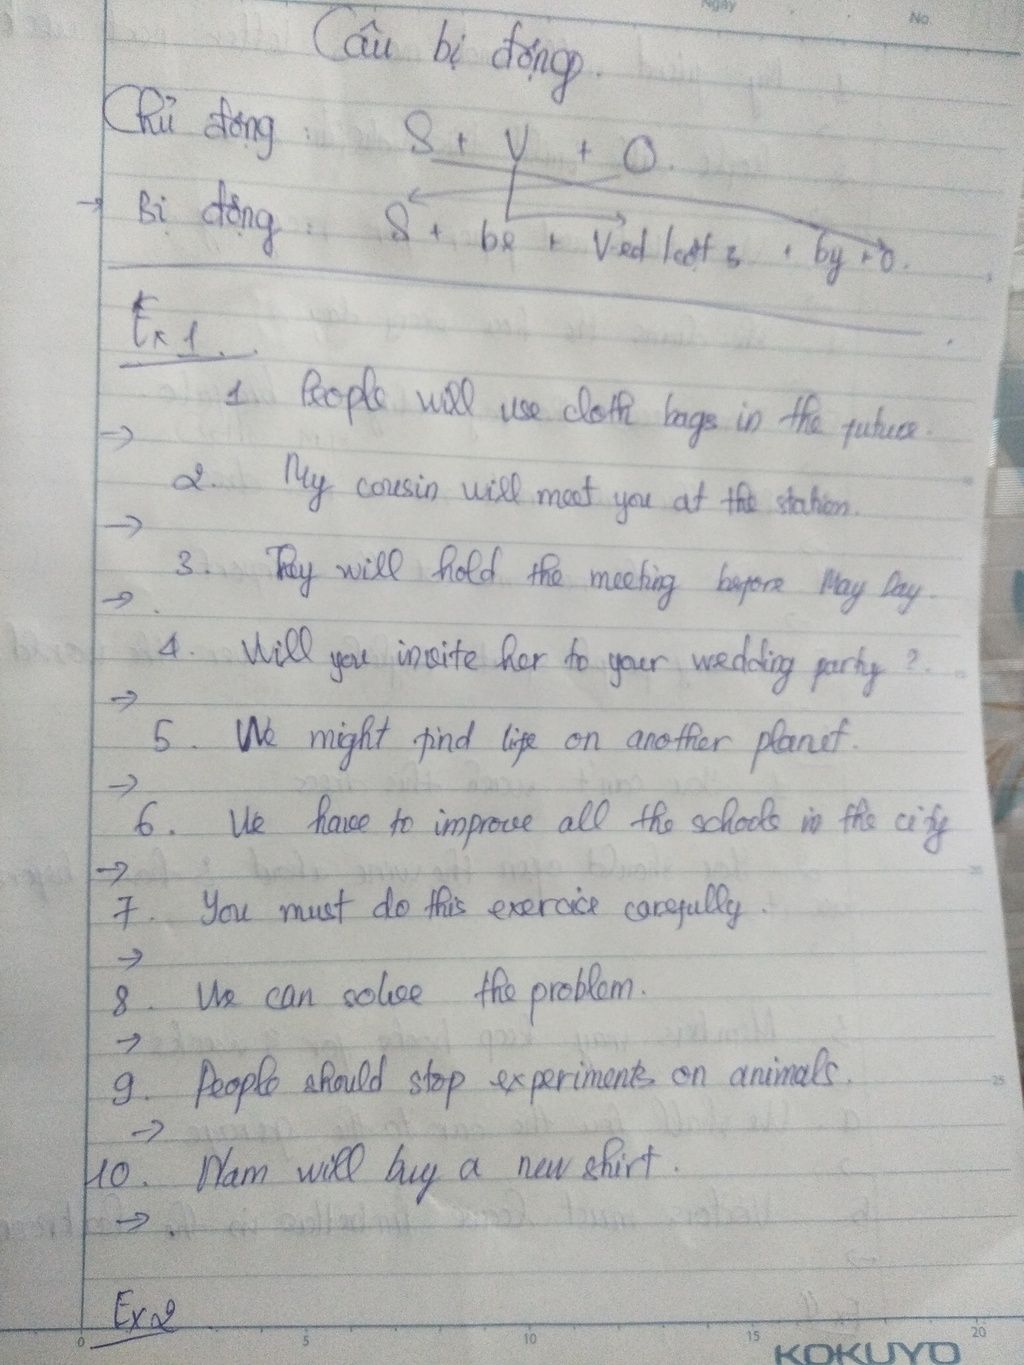 Ngày
No.
Câu bị động.
Chủ động : S + V + O.
→ Bị động : S + be + Ved/cột 3 + by + O.
Ex 1.
1 People will use cloth bags in the future.
→
2. My cousin will meet you at the station.
→
3. They will hold the meeting before May Day.
→ .
4. Will you invite her to your wedding party ?.
→
5. We might find life on another planet.
→
6. We have to improve all the schools in the city
→
7. You must do this exercice carefully.
→
8. We can solve the problem.
→
9. People should stop experiments on animals.
→
10. Nam will buy a new shirt.
→
Ex 2
0 5 10 15 20
25
KOKUYO